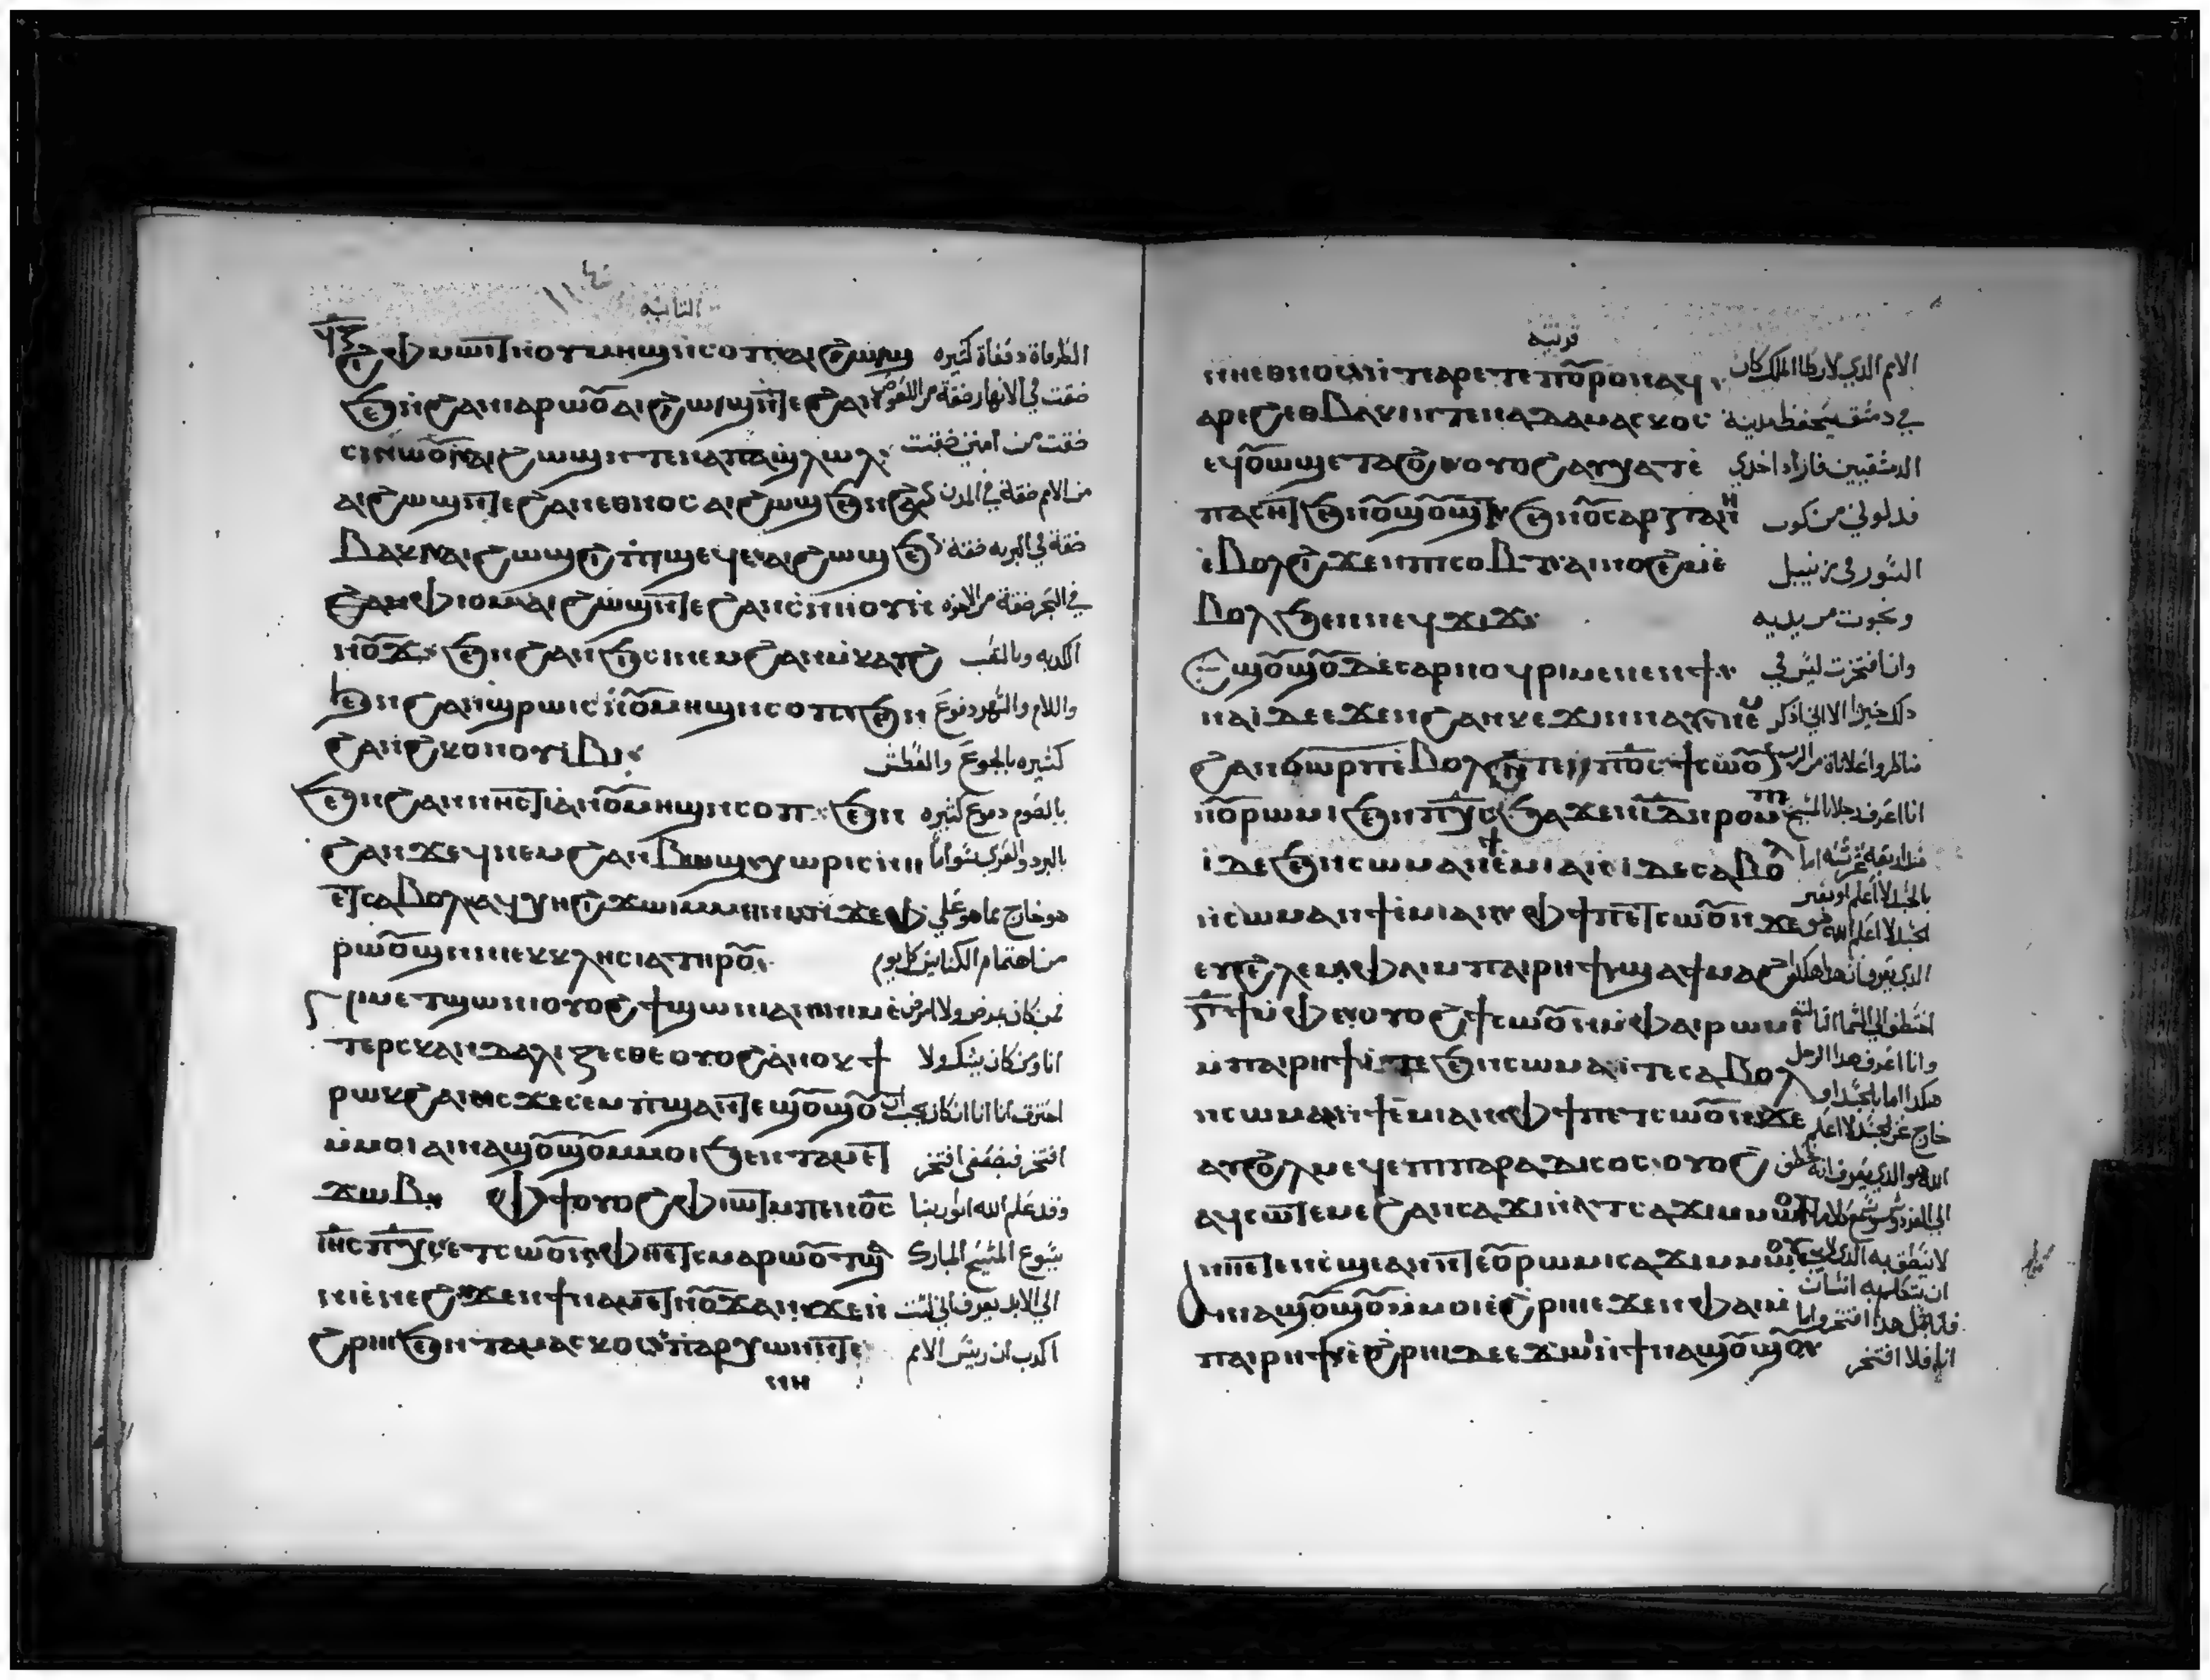 التانيه
ϩⲓ ⲫⲙⲱⲓⲧ ⲛⲟⲩⲙⲏϣ ⲛⲥⲟⲡ ⲁⲓϩⲱϣ الطرقاة دفعاة كثيره
ϧⲉⲛ ϩⲁⲛⲓⲁⲣⲱⲟⲩ ⲁⲓϩⲱϣ ⲛⲧⲉ ϩⲁⲛ ضقت في الانهار ضقة من اللصوص
ⲥⲓⲛⲱⲟⲩⲓ ⲁⲓϩⲱϣ ⲛⲧⲉⲛ ⲡⲁϣⲗⲱⲗ ضقت من امتي ضقت
ⲁⲓϩⲱϣ ⲛⲧⲉ ϩⲁⲛⲉⲑⲛⲟⲥ ⲁⲓϩⲱϣ ϧⲉⲛ من الامم ضقة في المدن
ⲃⲁⲕⲓ ⲁⲓϩⲱϣ ϩⲓ ⲡϣⲁϥⲉ ⲁⲓϩⲱϣ ϧⲉⲛ ضقة في البريه ضقة
ϩⲁⲛⲫⲓⲟⲙ ⲁⲓϩⲱϣ ⲛⲧⲉ ϩⲁⲛⲥⲛⲏⲟⲩ ⲛ في البحر ضقة من الاخوه
ⲛⲟⲩϫ ϧⲉⲛ ϩⲁⲛϧⲓⲥⲓ ⲛⲉⲙ ϩⲁⲛⲙⲕⲁⲩϩ الكدبه وبالتعب
ϧⲉⲛ ϩⲁⲛϣⲣⲱⲓⲥ ⲛⲟⲩⲙⲏϣ ⲛⲥⲟⲡ ϧⲉⲛ والالام والسهر دفوع
ϩⲁⲛϩⲕⲟ ⲛⲉⲙ ⲟⲩⲓⲃⲓ كثيره بالجوع والعطش
ϧⲉⲛ ϩⲁⲛⲛⲏⲥⲧⲓⲁ ⲛⲟⲩⲙⲏϣ ⲛⲥⲟⲡ ϧⲉⲛ بالصوم دموع كثيره
ϩⲁⲛϫⲉϥ ⲛⲉⲙ ϩⲁⲛⲃⲱϣ ⲭⲱⲣⲓⲥ ⲛⲏ بالبرد والعري سوا ما
ⲉⲧⲥⲁⲃⲟⲗ ⲁϥⲭⲏ ϩⲓϫⲱⲓ ⲙⲙⲏⲛⲓ ϫⲉ ⲫ هو خارج عما هو علي
ⲣⲱⲟⲩϣ ⲛⲛⲉⲕⲕⲗⲏⲥⲓⲁ ⲧⲏⲣⲟⲩ من اهتمام الكنايس كل يوم
ⲛⲓⲙ ⲉⲧϣⲱⲛⲓ ⲟⲩⲟϩ ϯϣⲱⲛⲓ ⲁⲛ ⲛⲓⲙ ⲉ فمن كان يمرض ولا امرض
ⲧⲉⲣⲥⲕⲁⲛⲇⲁⲗⲓⲍⲉⲥⲑⲉ ⲟⲩⲟϩ ⲁⲛⲟⲕ ϯ انا ومن كان يشك ولا
ⲣⲱⲕϩ ⲁⲛ ⲓⲥϫⲉ ⲥⲉⲙⲡϣⲁ ⲛⲧⲉϣⲟⲩϣⲟⲩ احترق انا ان كان يجب ان
ⲙⲙⲟⲓ ⲁⲓⲛⲁϣⲟⲩϣⲟⲩ ⲙⲙⲟⲓ ϧⲉⲛ ⲧⲁⲙⲉⲧ افتخر فبضعفي افتخر
ϫⲱⲃ ⲫϯ ⲟⲩⲟϩ ⲫⲓⲱⲧ ⲙⲡⲉⲛⲟⲥ وقد علم الله ابو ربنا
ⲓⲏⲥ ⲡⲭⲥ ⲉⲧⲥⲱⲟⲩⲛ ⲫⲏⲉⲧⲥⲙⲁⲣⲱⲟⲩⲧ ϣⲁ يسوع المسيح المبارك
ⲛⲓⲉⲛⲉϩ ϫⲉ ⲛϯⲛⲁⲙⲉⲑⲛⲟⲩϫ ⲁⲛ ϫⲉⲛ الي الابد يعرف اني لست
ϩⲣⲏⲓ ϧⲉⲛ ⲧⲁⲙⲁⲥⲕⲟⲥ ⲡⲁⲣⲭⲱⲛ ⲛⲧⲉ اكدب ان ريس الامم
قرنتيه
ⲛⲓⲉⲑⲛⲟⲥ ⲛⲧⲉ ⲁⲣⲉⲧⲁ ⲡⲟⲩⲣⲟ ⲛⲁϥ الامم الدي لارطا الملك كان
ⲁⲣⲉϩ ⲉⲑⲃⲁⲕⲓ ⲛⲧⲉ ⲛⲁⲇⲁⲙⲁⲥⲕⲟⲥ في دمشقيه يحفظ مدينة
ⲉϥⲟⲩⲱϣ ⲉⲧⲁϩⲟⲓ ⲟⲩⲟϩ ⲁⲩⲭⲁⲧ ⲉ الدمشقيين فاراد اخدي
ⲡⲉⲥⲏⲧ ϧⲉⲛ ⲟⲩϣⲟⲩϣⲧ ϧⲉⲛ ⲟⲩⲥⲁⲣⲅⲁⲛⲏ فدلوني من كوب
ⲉⲃⲟⲗ ϩⲓϫⲉⲛ ⲡⲓⲥⲟⲃⲧ ⲁⲓⲛⲟϩⲉⲙ ⲉ السور في زنبيل
ⲃⲟⲗ ϧⲉⲛ ⲛⲉϥϫⲓϫ ونجوت من يديه
ϣⲟⲩϣⲟⲩ ⲇⲉ ⲥⲉⲣⲛⲟϥⲣⲓ ⲙⲉⲛ ⲉⲛ ϯ وانا افتخرت ليس في
ⲛⲁⲓ ⲇⲉ ⲉϫⲉⲛ ϩⲁⲛⲕⲉϫⲓⲛⲛⲁⲩ ⲛⲉⲙ دلك خيرا الا اني ادكر
ϩⲁⲛϭⲱⲣⲡ ⲉⲃⲟⲗ ⲛⲧⲉ ⲡⲟⲥ ϯⲥⲱⲟⲩⲛ مناظر واعلاناة من الرب
ⲛⲟⲩⲣⲱⲙⲓ ϧⲉⲛ ⲡⲭⲥ ϧⲁϫⲉⲛ ⲓⲇ ⲛⲣⲟⲙⲡ انا اعرف رجلا بالمسيح
ⲓ ⲓⲧⲉ ϧⲉⲛ ⲥⲱⲙⲁ ⲛϯⲉⲙⲓ ⲁⲛ ⲓⲧⲉ ⲥⲁⲃⲟⲗ قبل اربعة عشر سنه اما
ⲛⲥⲱⲙⲁ ⲛϯⲉⲙⲓ ⲁⲛ ⲫϯ ⲡⲉⲧⲥⲱⲟⲩⲛ ϫⲉ بالجسد لا اعلم او بغير
ⲉⲩϩⲉⲗⲉⲙ ⲫⲁⲓ ⲙⲡⲁⲓⲣⲏϯ ϣⲁ ϯⲙⲁϩ الدي يعرف ان هدا هكدا
ⲅϯ ⲙⲫⲉ ⲟⲩⲟϩ ϯⲥⲱⲟⲩⲛ ⲙⲫⲁⲓⲣⲱⲙⲓ اختطف الي السما التالته
ⲙⲡⲁⲓⲣⲏϯ ⲓⲧⲉ ϧⲉⲛ ⲥⲱⲙⲁ ⲓⲧⲉ ⲥⲁⲃⲟⲗ وانا اعرف هدا الرجل
ⲛⲥⲱⲙⲁ ⲛϯⲉⲙⲓ ⲁⲛ ⲫϯ ⲡⲉⲧⲥⲱⲟⲩⲛ ϫⲉ خارج عن الجسد لا اعلم
ⲁⲩϩⲟⲗⲙⲉϥ ⲉⲡⲓⲡⲁⲣⲁⲇⲓⲥⲟⲥ ⲟⲩⲟϩ الله هو الدي يعرف انه اختطف
ⲁϥⲥⲱⲧⲉⲙ ⲉϩⲁⲛⲥⲁϫⲓ ⲛⲁⲧⲥⲁϫⲓ ⲙⲙⲱⲟⲩ الي الفردوس وسمع كلاما
ⲛⲏ ⲉⲧⲉ ⲛⲥϣⲉ ⲁⲛ ⲛⲧⲉ ⲟⲩⲣⲱⲙⲓ ⲥⲁϫⲓ ⲙⲙⲱⲟⲩ لا ينطق به الدي لا يجب
ⲁⲓⲛⲁϣⲟⲩϣⲟⲩ ⲙⲙⲟⲓ ⲉϩⲣⲏⲓ ⲉϫⲉⲛ ⲫⲁⲓ ⲙ ان يتكلم به انسان
ⲡⲁⲓⲣⲏϯ ⲉϩⲣⲏⲓ ⲇⲉ ⲉϫⲱⲓ ⲛϯⲛⲁϣⲟⲩϣⲟⲩ انا فلا افتخر